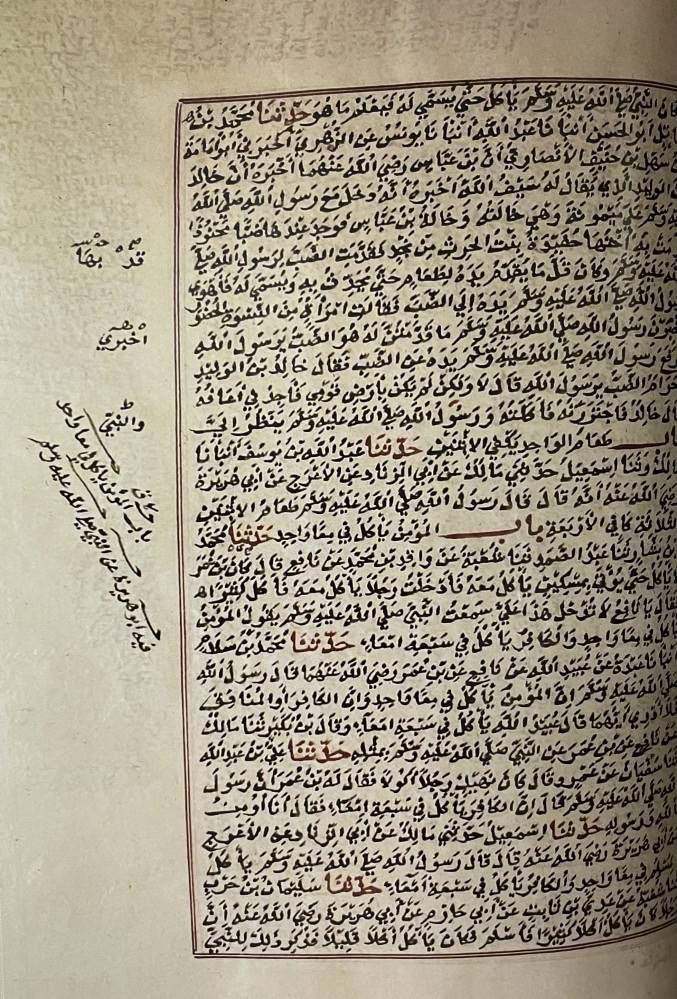 كان النبي صلى الله عليه وسلم يأكل حتى يسمى له فيعلم ما هو حدثنا محمد بن
مقاتل أبو الحسن أنبأنا عبد الله أنبأنا يونس عن الزهري أخبرني أبو أمامة
بن سهل بن حنيف الأنصاري أن ابن عباس رضي الله عنهما أخبره أن خالد
بن الوليد الذي يقال له سيف الله أخبره أنه دخل مع رسول الله صلى الله
عليه وسلم على ميمونة وهي خالته وخالة بن عباس فوجد عندها ضبا محنوذا
قدمت به أختها حفيدة بنت الحرث من نجد فقدمت الضب لرسول الله صلى
الله عليه وسلم وكان قل ما يقدم يده لطعام حتى يحدث به ويسمى له فأهوى
رسول الله صلى الله عليه وسلم يده إلى الضب فقالت امرأة من النسوة الحضور
أخبرن رسول الله صلى الله عليه وسلم ما قدمتن له هو الضب يرسول الله
فرفع رسول الله صلى الله عليه وسلم يده عن الضب فقال خالد بن الوليد
أحرام الضب يرسول الله قال لا ولكن لم يكن بأرض قومي فأجدني أعافه
قال خالد فاجتررته فأكلته ورسول الله صلى الله عليه وسلم ينظر إلي
باب طعام الواحد يكفي الاثنين حدثنا عبد الله بن يوسف أنبأنا
مالك وثنا إسمعيل حدثني مالك عن أبي الزناد عن الأعرج عن أبي هريرة
رضي الله عنه أنه قال قال رسول الله صلى الله عليه وسلم طعام الاثنين
كافي الأربعة باب المؤمن يأكل في معا واحد حدثنا محمد
بن بشار ثنا عبد الصمد ثنا شعبة عن واقد بن محمد عن نافع قال كان بن عمر
لا يأكل حتى يؤتى بمسكين يأكل معه فأدخلت رجلا يأكل معه فأكل كثيرا
فقال يا نافع لا تدخل هذا علي سمعت النبي صلى الله عليه وسلم يقول المؤمن
يأكل في معا واحد والكافر يأكل في سبعة أمعاء حدثنا محمد بن سلام
أنبأنا عبدة عن عبيد الله عن نافع عن بن عمر رضي الله عنهما قال رسول الله
صلى الله عليه وسلم إن المؤمن يأكل في معا واحد وإن الكافر أو المنافق
فلا أدري أيهما قال عبيد الله يأكل في سبعة أمعاء وقال بن بكير ثنا مالك
عن نافع عن بن عمر عن النبي صلى الله عليه وسلم بمثله حدثنا علي بن عبد الله
ثنا سفيان عن عمرو قال كان أبو نهيك رجلا أكولا فقال له بن عمر إن رسول
الله صلى الله عليه وسلم قال إن الكافر يأكل في سبعة أمعاء فقال أنا أومن
بالله ورسوله حدثنا إسمعيل حدثني مالك عن أبي الزناد عن الأعرج
عن أبي هريرة رضي الله عنه قال قال رسول الله صلى الله عليه وسلم يأكل
المسلم في معا واحد والكافر يأكل في سبعة أمعاء حدثنا سليمان بن حرب
ثنا شعبة عن عدي بن ثابت عن أبي حازم عن أبي هريرة رضي الله عنه أن
رجلا كان يأكل أكلا كثيرا فأسلم فكان يأكل أكلا قليلا فذكر ذلك للنبي
قد بها
أخبري
باب المؤمن يأكل في معا واحد
فيه أبو هريرة عن النبي صلى الله عليه وسلم